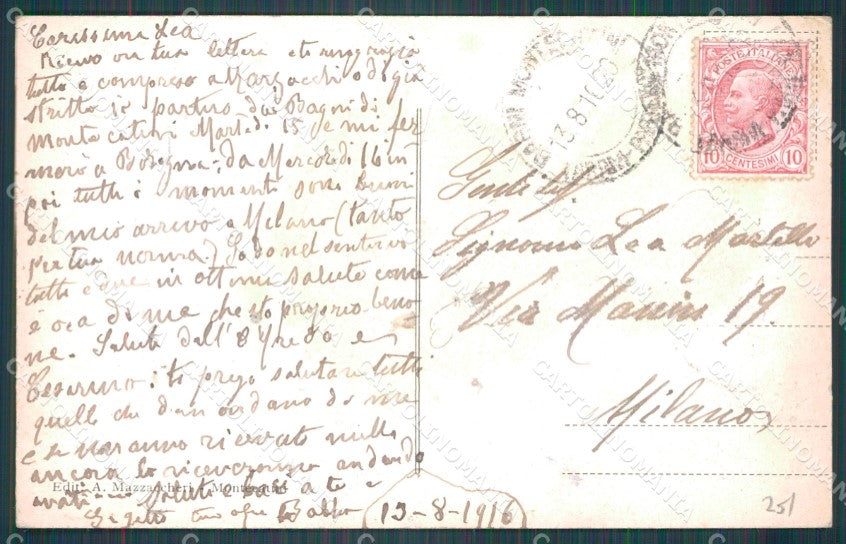 Carissima Lea
Ricevo ora tua lettera e ti ringrazio
tutto e compreso a
stretto io partirò dai Bagni di
Montecatini Martedi 15 e mi fer
merò a Bologna; da Mercoledi 16 in
poi tutti i momenti sono buoni
del mio arrivo a Milano (tanto
per tua norma.) Godo nel sentirvo
tutti e due in ottima salute come
è ora di me che sto proprio beno
ne. Saluti dall' e
ti prego salutare tutti
quelli che domandano di me
e se non anno ricevuto nulla
ancora lo riceveranno andando
avanti Saluti baci a te e
tuo
13-8-1916
Edit. A. Mazzancheri - Montecatini
BAGNI MONTECATINI
13.8.16
POSTE ITALIANE
10 CENTESIMI 10
Gentile
Signora Lea Martello
Via Manin 19.
Milano
251
CARTOLINOMANIA